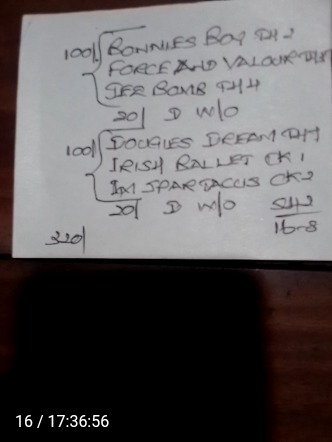 100/ BONNIES BOY TH 2
FORCE AND VALOUR TH
SEE BOMB TH 4
20/ D W/O
100/ DOUGIES DREAM TH
IRISH BALLET CK 1
IM SPARTACUS CK 2
20/ D W/O
16-8
320/
16 / 17:36:56